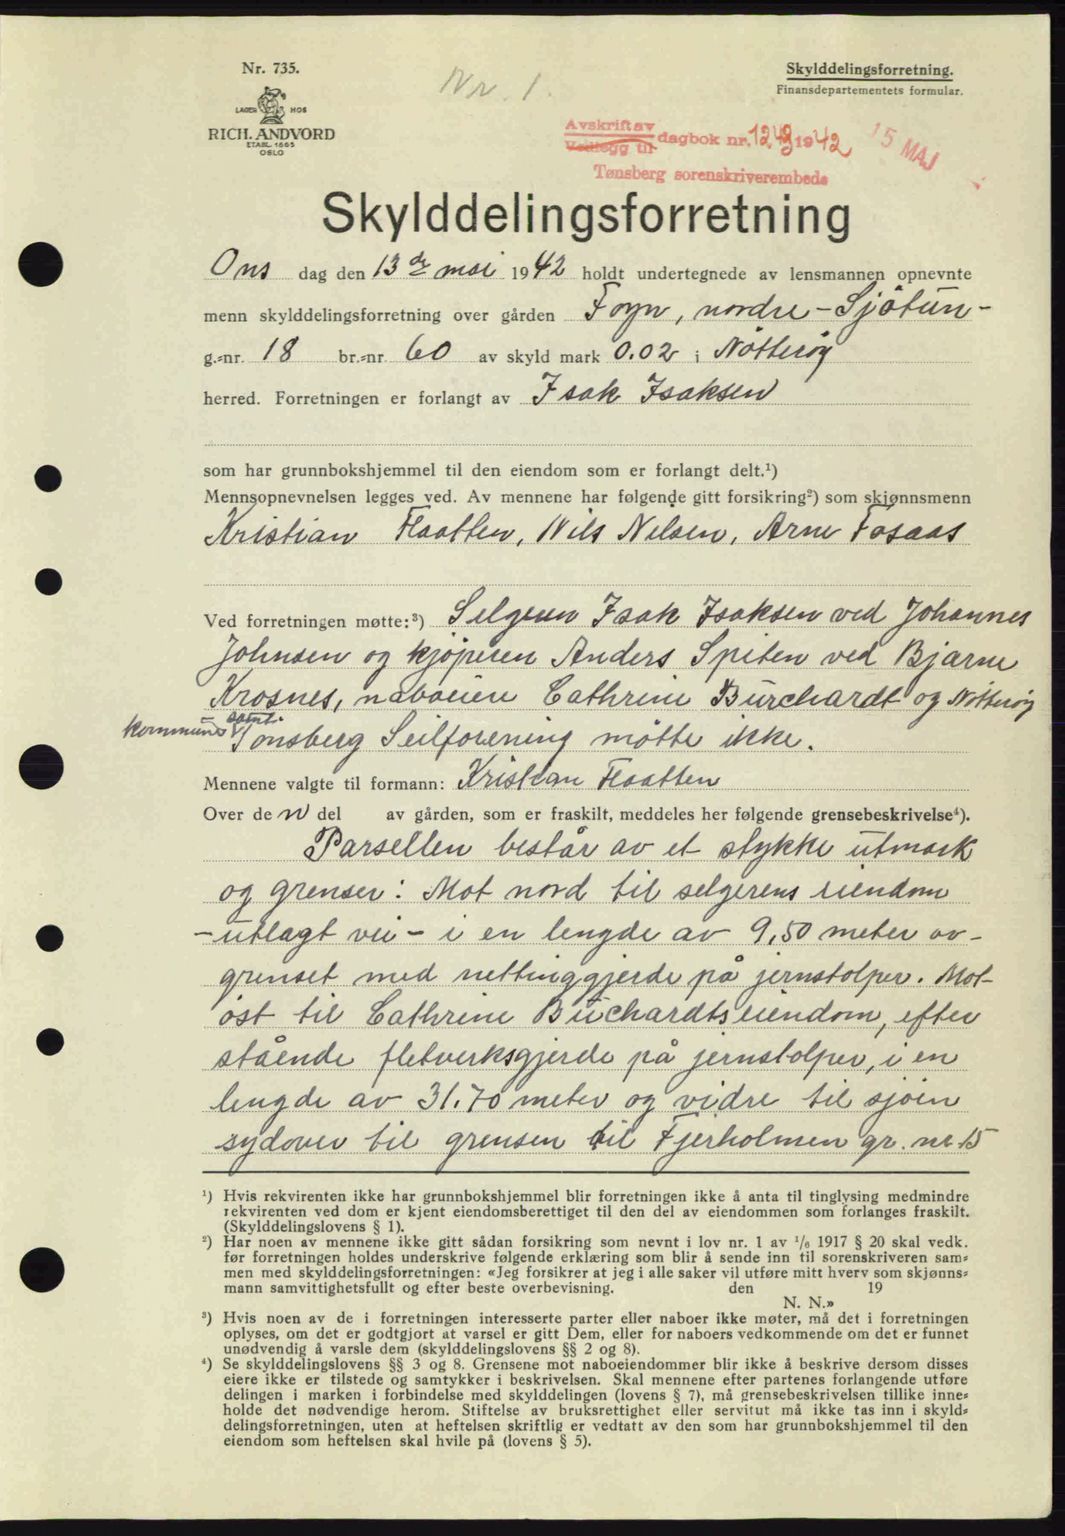 Nr. 735.
Nr. 1.
Skylddelingsforretning.
Finansdepartementets formular.
LAGER HOS
RICH. ANDVORD
ETABL. 1865
OSLO
Avskrift av
Vedlegg til dagbok nr. 1243 1942 15 MAJ
Tønsberg sorenskriverembede
Skylddelingsforretning
Ons dag den 13de mai 1942 holdt undertegnede av lensmannen opnevnte
menn skylddelingsforretning over gården Foyn, nordre - Sjötun -
g.-nr. 18 br.-nr. 60 av skyld mark 0.02 i Nötteröy
herred. Forretningen er forlangt av Isak Isaksen
som har grunnbokshjemmel til den eiendom som er forlangt delt.¹)
Mennsopnevnelsen legges ved. Av mennene har følgende gitt forsikring²) som skjønnsmenn
Kristian Flaatten, Nils Nilsen, Arne Fosaas
Ved forretningen møtte:³) Selgeren Isak Isaksen ved Johannes
Johnsen og kjöperen Anders Spiten ved Bjarne
Krosnes, naboeien Cathrine Burchardt og Nötteröy
kommune samt Tönsberg Seilforening mötte ikke.
Mennene valgte til formann: Kristian Flaatten
Over de n del av gården, som er fraskilt, meddeles her følgende grensebeskrivelse⁴).
Parsellen består av et stykke utmark
og grenser: Mot nord til selgerens eiendom
- utlagt vei - i en lengde av 9,50 meter av-
grenset med nettinggjerde på jernstolper. Mot
öst til Cathrine Burchardts eiendom, efter
stående fletverksgjerde på jernstolper, i en
lengde av 31.70 meter og vidre til sjöen
sydover til grensen til Fjerholmen gr. nr. 15
¹) Hvis rekvirenten ikke har grunnbokshjemmel blir forretningen ikke å anta til tinglysing medmindre
rekvirenten ved dom er kjent eiendomsberettiget til den del av eiendommen som forlanges fraskilt.
(Skylddelingslovens § 1).
²) Har noen av mennene ikke gitt sådan forsikring som nevnt i lov nr. 1 av ¹/₆ 1917 § 20 skal vedk.
før forretningen holdes underskrive følgende erklæring som blir å sende inn til sorenskriveren sam-
men med skylddelingsforretningen: «Jeg forsikrer at jeg i alle saker vil utføre mitt hverv som skjønns-
mann samvittighetsfullt og efter beste overbevisning. den 19
N. N.»
³) Hvis noen av de i forretningen interesserte parter eller naboer ikke møter, må det i forretningen
oplyses, om det er godtgjort at varsel er gitt Dem, eller for naboers vedkommende om det er funnet
unødvendig å varsle dem (skylddelingslovens §§ 2 og 8).
⁴) Se skylddelingslovens §§ 3 og 8. Grensene mot naboeiendommer blir ikke å beskrive dersom disses
eiere ikke er tilstede og samtykker i beskrivelsen. Skal mennene efter partenes forlangende utføre
delingen i marken i forbindelse med skylddelingen (lovens § 7), må grensebeskrivelsen tillike inne-
holde det nødvendige herom. Stiftelse av bruksrettighet eller servitut må ikke tas inn i skyld-
delingsforretningen, uten at heftelsen skriftlig er vedtatt av den som har grunnbokshjemmel til den
eiendom som heftelsen skal hvile på (lovens § 5).